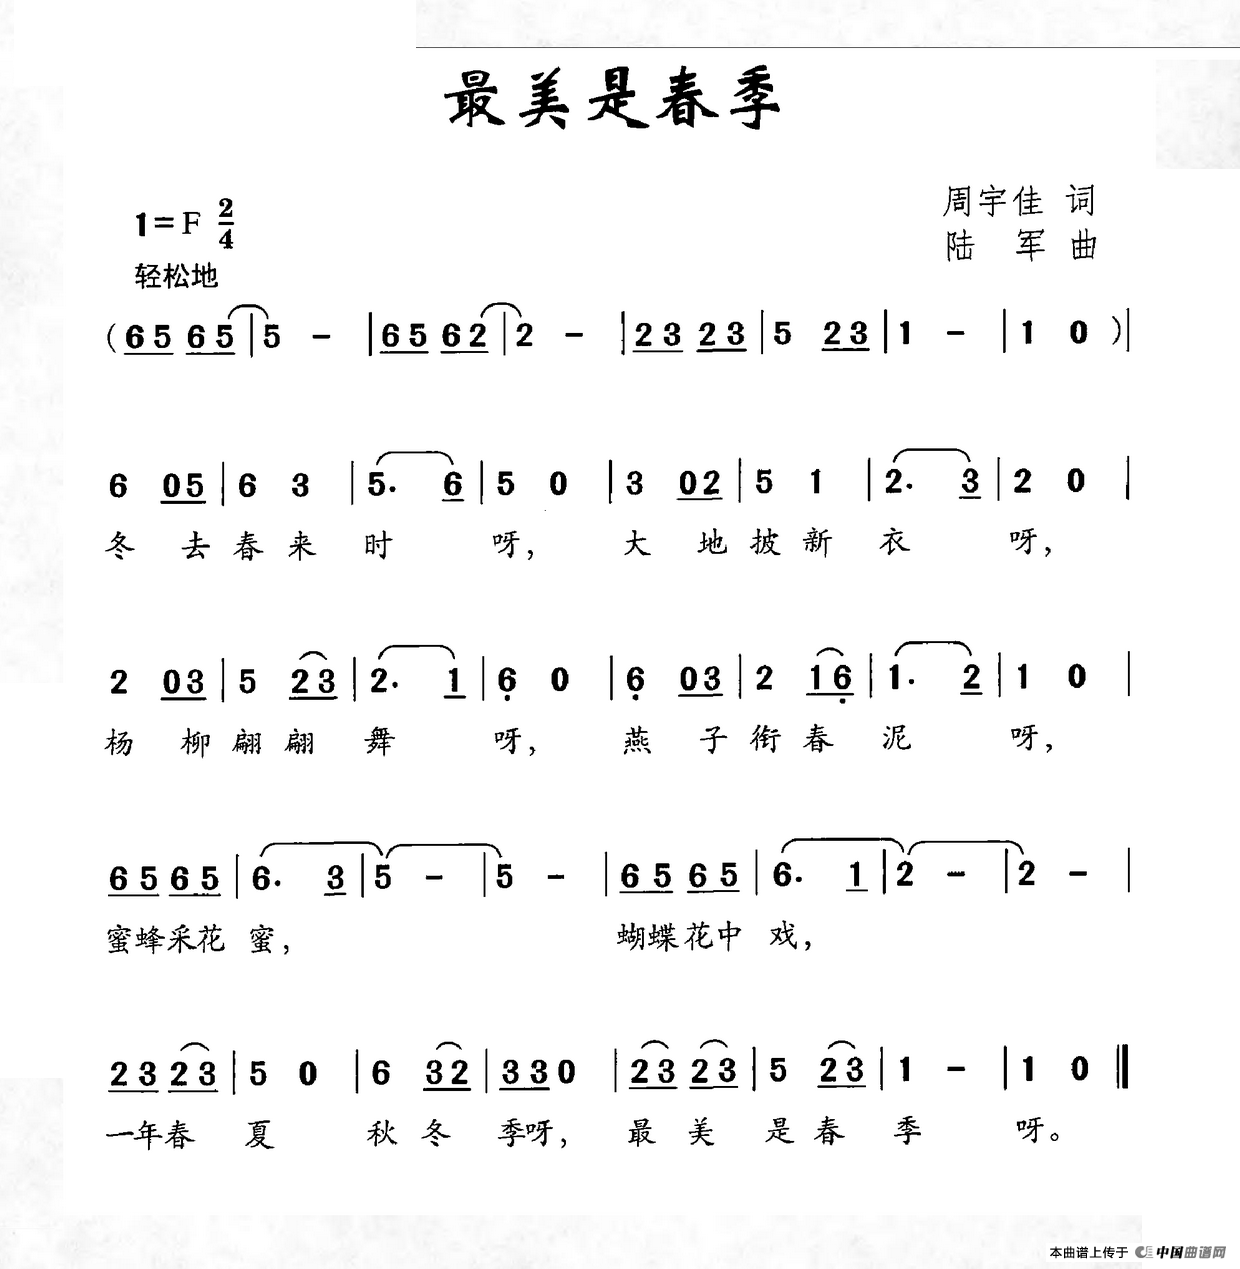 最美是春季
周宇佳 词
1=F 2/4
陆 军 曲
轻松地
(6 5 6 5 | 5 － | 6 5 6 2 | 2 － | 2 3 2 3 | 5 2 3 | 1 － | 1 0 )|
6 0 5 | 6 3 | 5. 6 | 5 0 | 3 0 2 | 5 1 | 2. 3 | 2 0 |
冬 去 春 来 时 呀， 大 地 披 新 衣 呀，
2 0 3 | 5 2 3 | 2. 1 | 6̣ 0 | 6̣ 0 3 | 2 1 6̣ | 1. 2 | 1 0 |
杨 柳 翩 翩 舞 呀， 燕 子 衔 春 泥 呀，
6 5 6 5 | 6. 3 | 5 － | 5 － | 6 5 6 5 | 6. 1 | 2 － | 2 － |
蜜蜂采花 蜜， 蝴蝶花中 戏，
2 3 2 3 | 5 0 | 6 3 2 | 3 3 0 | 2 3 2 3 | 5 2 3 | 1 － | 1 0 ‖
一年春 夏 秋 冬 季呀， 最 美 是 春 季 呀。
本曲谱上传于 中国曲谱网